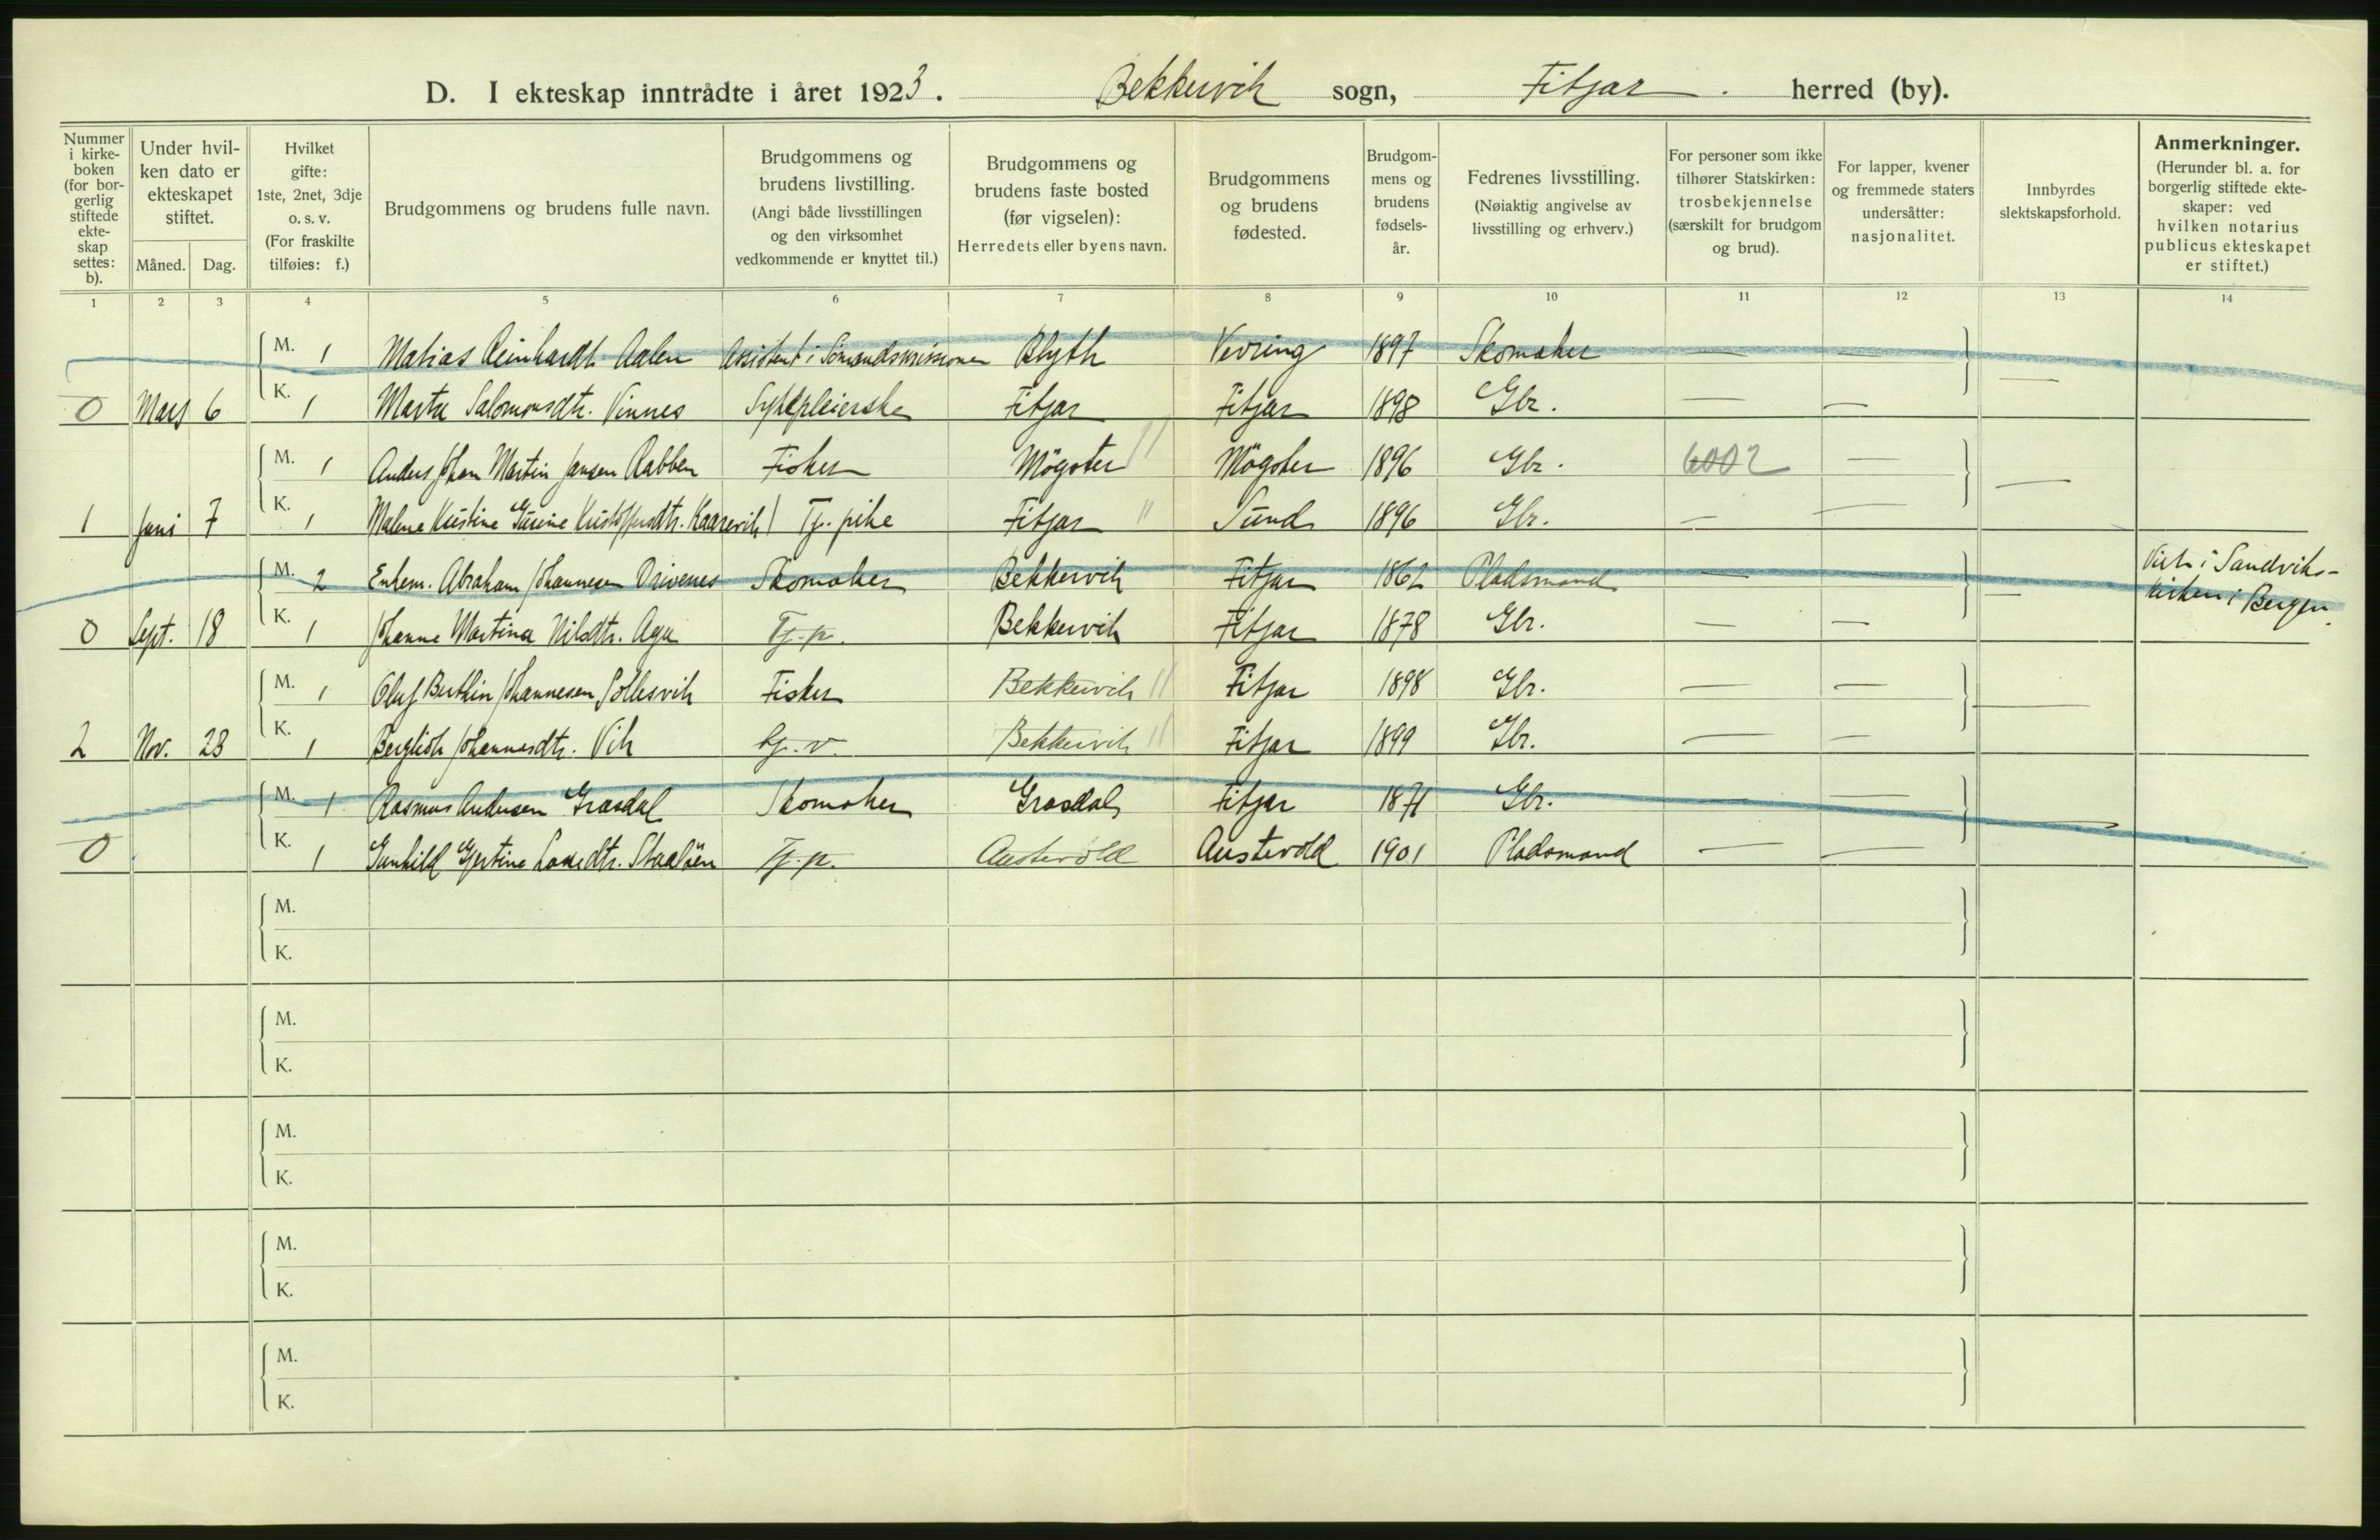 D. I ekteskap inntrådte i året 1923. Bekkervik sogn, Fitjar. herred (by).
Nummer i kirke- boken (for bor- gerlig stiftede ekte- skap settes: b).
Under hvil- ken dato er ekteskapet stiftet.
Måned. Dag.
Hvilket gifte: 1ste, 2net, 3dje o. s. v. (For fraskilte tilføies: f.)
Brudgommens og brudens fulle navn.
Brudgommens og brudens livstilling. (Angi både livsstillingen og den virksomhet vedkommende er knyttet til.)
Brudgommens og brudens faste bosted (før vigselen): Herredets eller byens navn.
Brudgommens og brudens fødested.
Brudgom- mens og brudens fødsels- år.
Fedrenes livsstilling. (Nøiaktig angivelse av livsstilling og erhverv.)
For personer som ikke tilhører Statskirken: trosbekjennelse (særskilt for brudgom og brud).
For lapper, kvener og fremmede staters undersåtter: nasjonalitet.
Innbyrdes slektskapsforhold.
Anmerkninger. (Herunder bl. a. for borgerlig stiftede ekte- skaper: ved hvilken notarius publicus ekteskapet er stiftet.)
1 2 3 4 5 6 7 8 9 10 11 12 13 14
M. 1 Matias Reinhardt Aalen Assistent i Sømandsmissionen Blyth Vevring 1897 Skomaker — —
0 Mars 6 K. 1 Marta Salomonsdtr. Vinnes Sykepleierske Fitjar Fitjar 1898 Gbr. — — —
M. 1 Anders Johan Martin Jansen Rabben Fisker Møgster 11 Møgster 1896 Gbr. 6002 —
1 Juni 7 K. 1 Malene Kristine Gurine Kristoffersdtr. Kaarevik Tj. pike Fitjar " Sund 1896 Gbr. — — —
M. 2 Enkem. Abraham Johannesen Drivenes Skomaker Bekkervik Fitjar 1862 Pladsmand — — Viet i Sandviks-
0 Sept. 18 K. 1 Johanne Martina Nilsdtr. Aga Tj. p. Bekkervik Fitjar 1878 Gbr. — — — kirken i Bergen.
M. 1 Oluf Berthin Johannesen Sollesvik Fisker Bekkervik 11 Fitjar 1898 Gbr. — —
2 Nov. 23 K. 1 Bergliot Johannesdtr. Vik Bekkervik 11 Fitjar 1899 Gbr. — — —
M. 1 Rasmus Andersen Grasdal Skomaker Grasdal Fitjar 1871 Gbr. — —
0 K. 1 Gunhild Gjertine Larsdtr. Tj. p. Austevold Austevold 1901 Pladsmand — — —
M.
K.
M.
K.
M.
K.
M.
K.
M.
K.